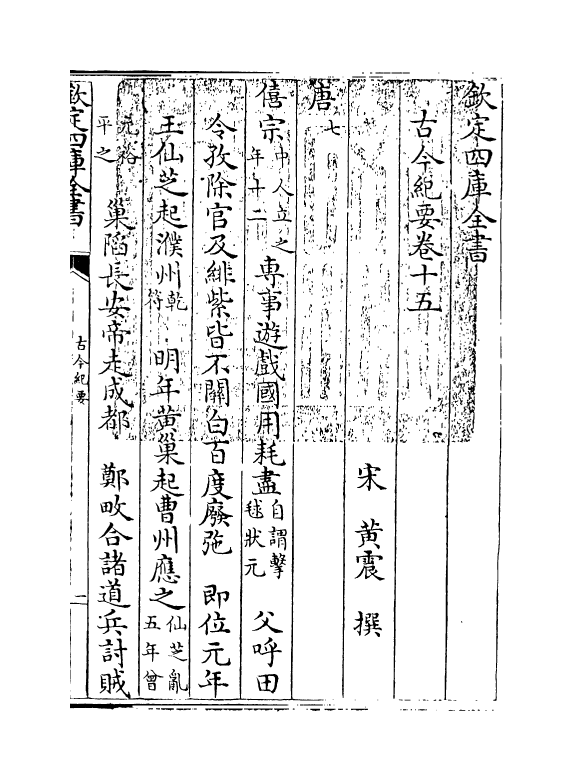 欽定四庫全書
古今紀要卷十五
宋 黃震 撰
唐七
僖宗中人立之年十二專事遊戲國用耗盡自謂擊毬狀元 父呼田
令孜除官及緋紫皆不關白百度廢弛 即位元年
王仙芝起濮州乾符 明年黃巢起曹州應之仙芝亂五年曾
元裕平之 巢䧟長安帝走成都 鄭畋合諸道兵討賊
欽定四庫全書
古今紀要